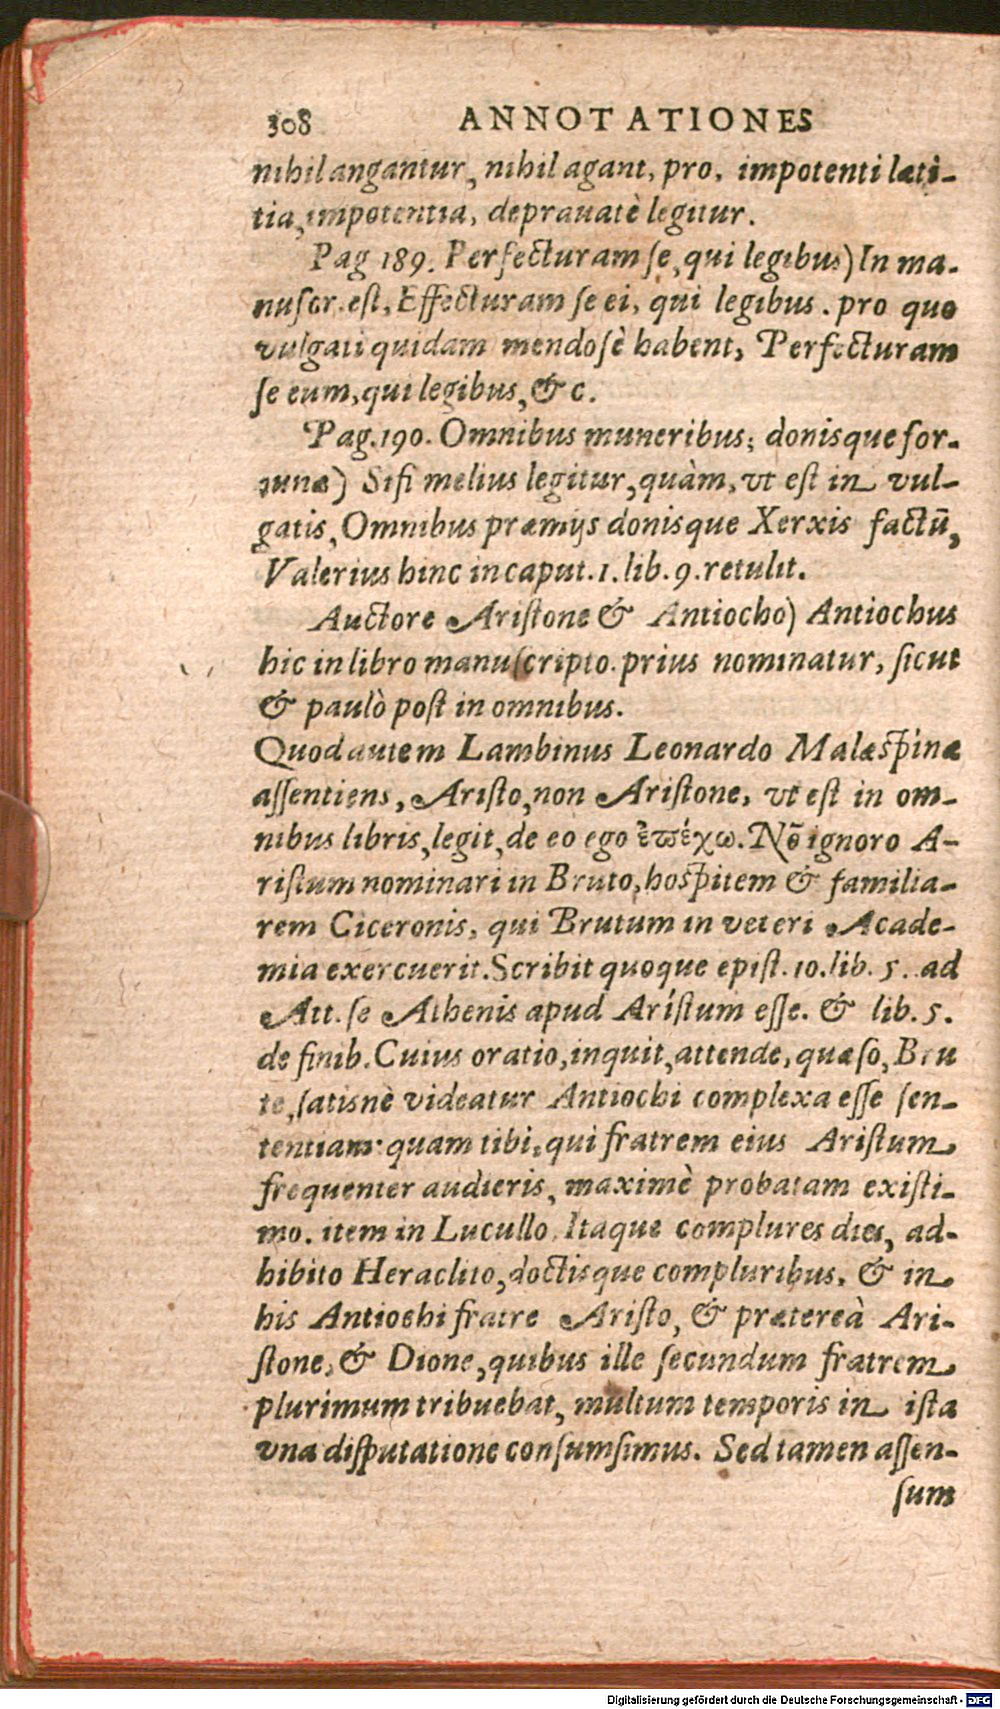 308 ANNOTATIONES
nihil angantur, nihil agant, pro, impotenti læti-
tia, impotentia, deprauatè legitur.
Pag 189. Perfecturam se, qui legibus) In ma-
nuscr. est, Effecturam se ei, qui legibus. pro quo
vulgati quidam mendosè habent, Perfecturam
se eum, qui legibus, & c.
Pag. 190. Omnibus muneribus; donisque for-
tunæ) Sifi melius legitur, quàm, vt est in vul-
gatis, Omnibus præmijs donisque Xerxis factū,
Valerius hinc in caput. 1. lib. 9. retulit.
Auctore Aristone & Antiocho) Antiochus
hic in libro manuscripto. prius nominatur, sicut
& paulò post in omnibus.
Quod autem Lambinus Leonardo Malæspinæ
assentiens, Aristo, non Aristone, vt est in om-
nibus libris, legit, de eo ego ἐπέχω. Nō ignoro A-
ristum nominari in Bruto, hospitem & familia-
rem Ciceronis, qui Brutum in veteri Acade-
mia exercuerit. Scribit quoque epist. 10. lib. 5. ad
Att. se Athenis apud Aristum esse. & lib. 5.
de finib. Cuius oratio, inquit, attende, quæso, Bru
te, satisnè videatur Antiochi complexa esse sen-
tentiam: quam tibi, qui fratrem eius Aristum
frequenter audieris, maximè probatam existi-
mo. item in Lucullo. Itaque complures dies, ad-
hibito Heraclito, doctisque compluribus, & in
his Antiochi fratre Aristo, & prætereà Ari-
stone, & Dione, quibus ille secundum fratrem
plurimum tribuebat, multum temporis in ista
vna disputatione consumsimus. Sed tamen assen-
sum
Digitalisierung gefördert durch die Deutsche Forschungsgemeinschaft - DFG